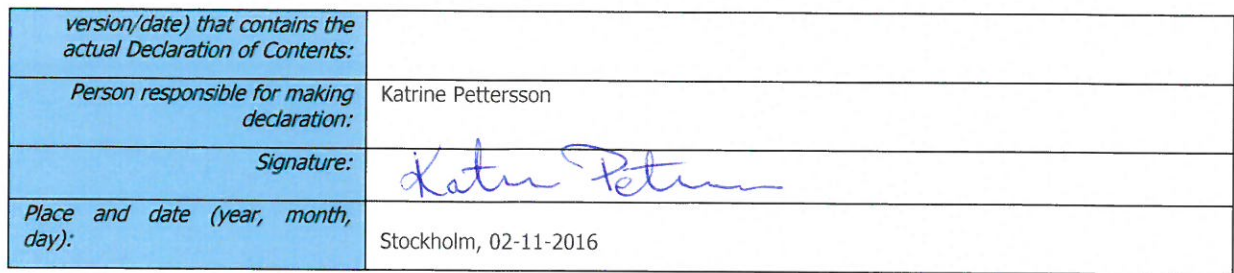 version/date) that contains the
actual Declaration of Contents:
Person responsible for making
declaration:
Katrine Pettersson
Signature:
Place and date (year, month,
day):
Stockholm, 02-11-2016